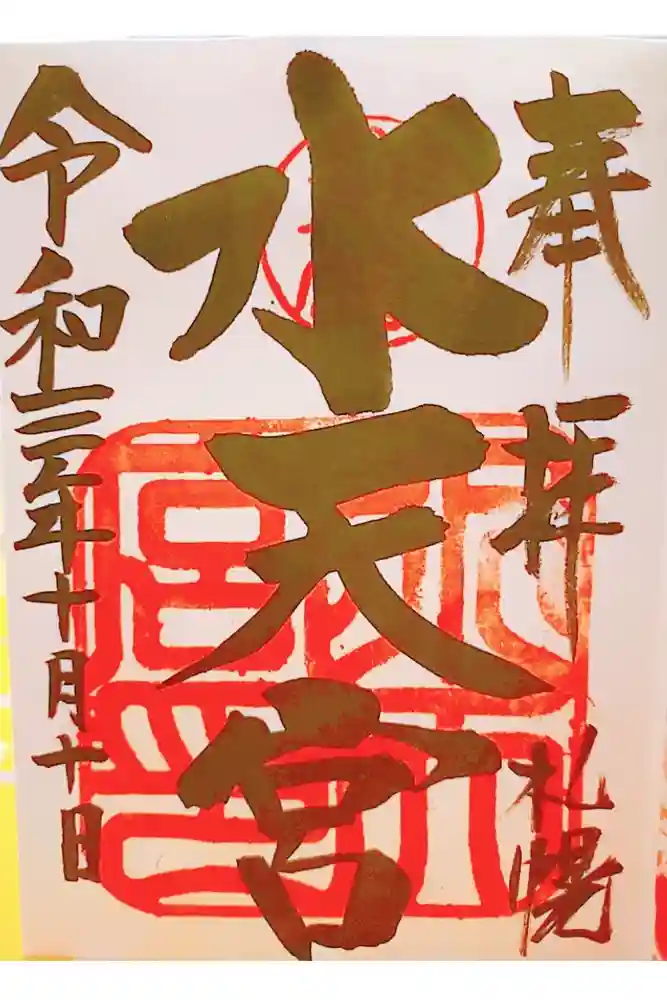 奉拝 札幌
水天宮
令和三年十月十日